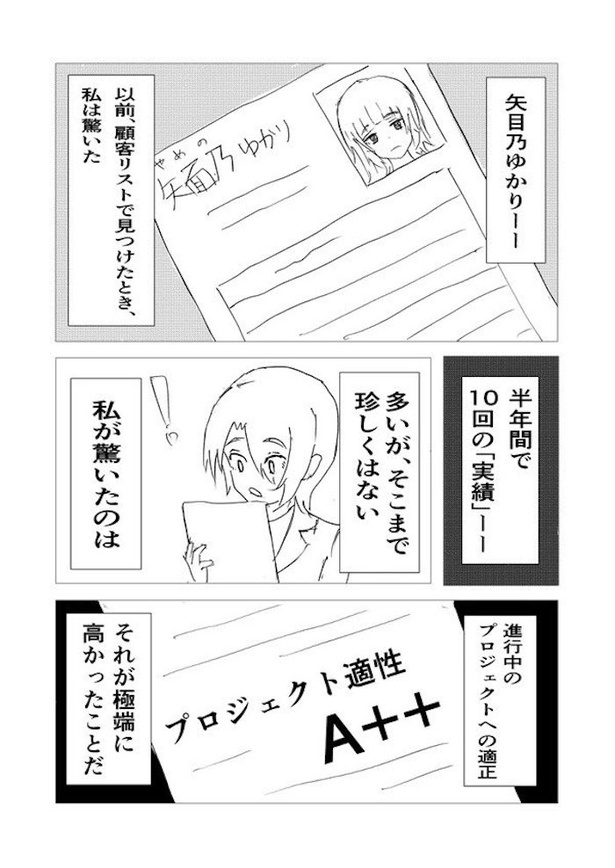 矢目乃ゆかりーー
やめの
矢目乃ゆかり
以前、顧客リストで見つけたとき、
私は驚いた
半年間で
10回の「実績」ーー
多いが、そこまで
珍しくはない
!
私が驚いたのは
進行中の
プロジェクトへの適正
プロジェクト適性
A++
それが極端に
高かったことだ